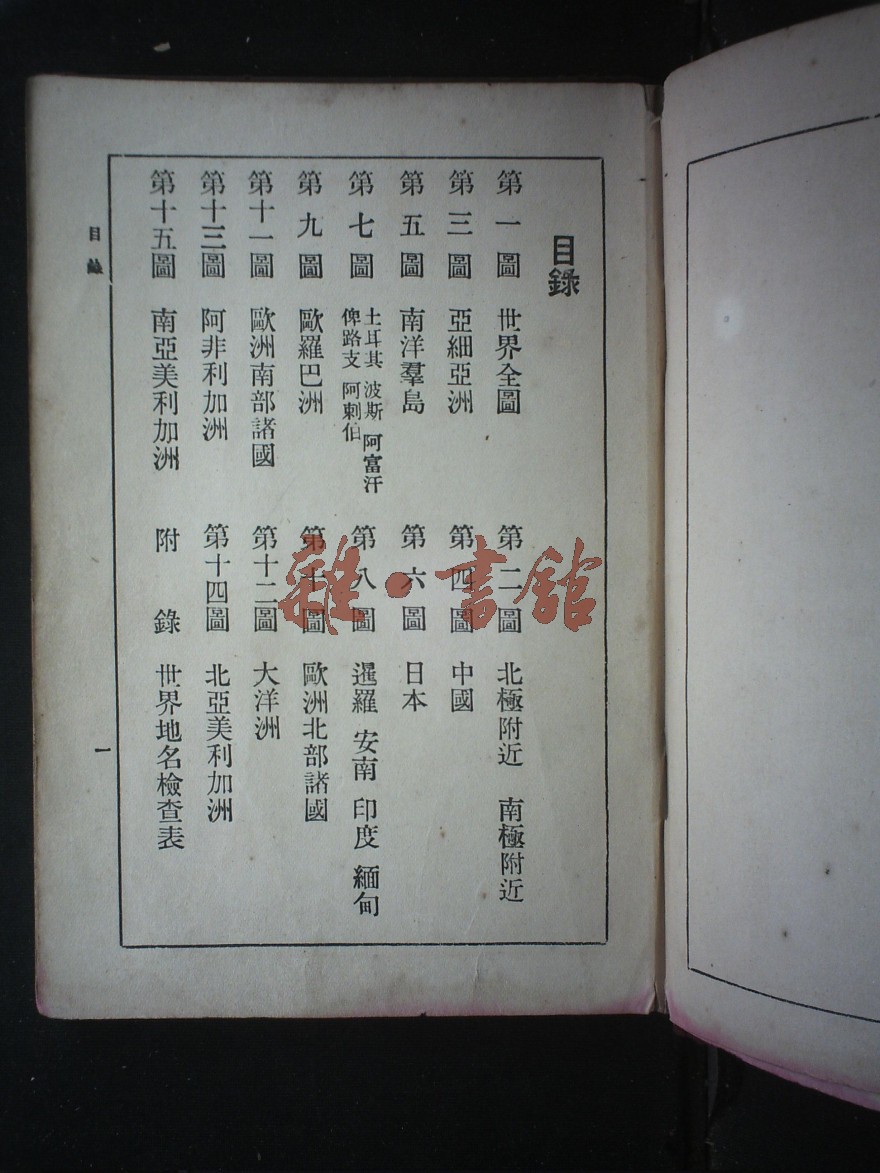 目錄
第一圖 世界全圖 第二圖 北極附近 南極附近
第三圖 亞細亞洲 第四圖 中國
第五圖 南洋羣島 第六圖 日本
第七圖 土耳其 波斯 阿富汗
俾路支 阿剌伯
第八圖 暹羅 安南 印度 緬甸
第九圖 歐羅巴洲 第十圖 歐洲北部諸國
第十一圖 歐洲南部諸國 第十二圖 大洋洲
第十三圖 阿非利加洲 第十四圖 北亞美利加洲
第十五圖 南亞美利加洲 附錄 世界地名檢查表
目錄
一
雜·書館